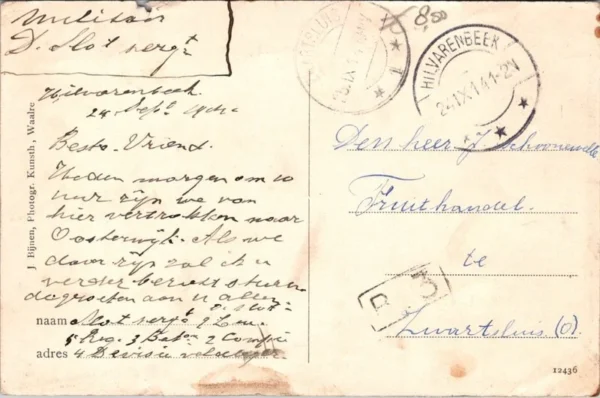 Militair
D. Slot sergt
8,50
HILVARENBEEK
24.IX.14.1-2N
Hilvarenbeek
24 Sept. 1914
Beste Vriend.
Heden morgen om 10
uur zijn we van
hier vertrokken naar
Oosterwijk. Als we
daar zijn zal ik u
verder bericht sturen
de groeten aan u allen
D. Slot
naam Slot sergt
5 Reg. 3 Bat. 2 Comp
adres 4 Devisie veldleger
Den heer J. Schoonewelle
Fruithandel.
te
Zwartsluis (O.)
J Bijnen, Photogr. Kunsth., Waalre
12436